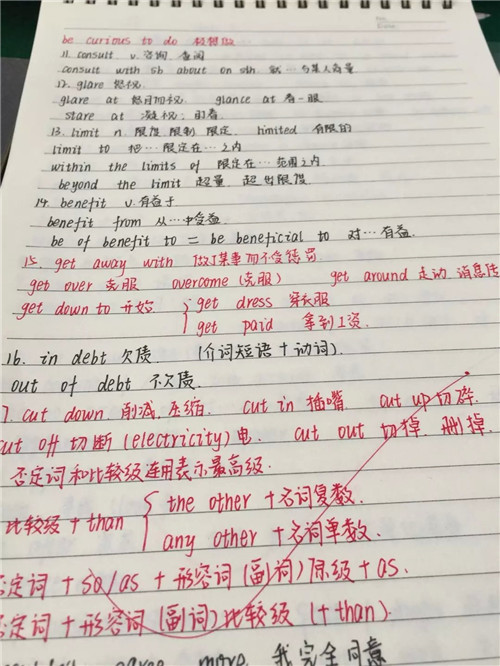 be curious to do 极想做
11. consult v. 咨询 查阅
consult with sb about on sth 就…与某人商量
12. glare 怒视
glare at 怒目而视 glance at 看一眼
stare at 凝视；盯着
13. limit n. 限度 限制 限定. limited 有限的
limit to 把…限定在…之内
within the limits of 限定在…范围之内
beyond the limit 超量 超出限度
14. benefit v. 有益于
benefit from 从…中受益
be of benefit to = be beneficial to 对…有益.
15. get away with 做了某事而不受惩罚
get over 克服 overcome (克服) get around 走动 消息传
get down to 开始 get dress 穿衣服
get paid 拿到工资.
16. in debt 欠债 (介词短语+动词).
out of debt 不欠债.
7. cut down 削减.压缩. cut in 插嘴 cut up 切碎
cut off 切断 (electricity) 电. cut out 切掉. 删掉.
否定词和比较级连用表示最高级.
比较级 + than the other + 名词复数.
any other + 名词单数.
否定词 + so/as + 形容词 (副词) 原级 + as.
否定词 + 形容词 (副词) 比较级 (+ than).
agree more 我完全同意